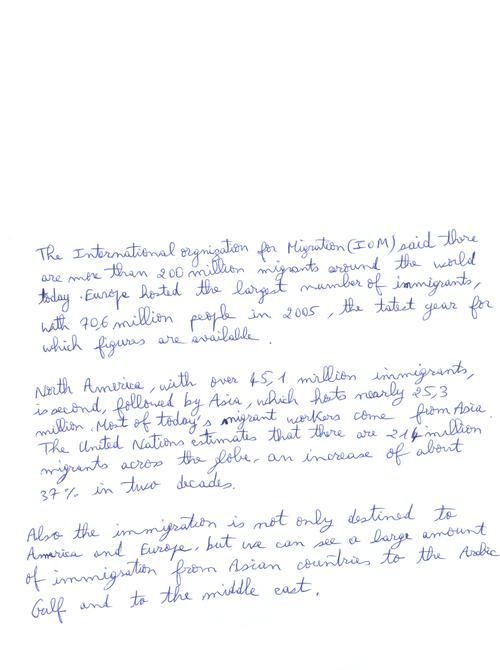 The International orgnization for Migration (IOM) said there
are more than 200 million migrants around the world
today. Europe hosted the largest number of immigrants,
with 70,6 million people in 2005, the latest year for
which figures are available.
North America, with over 45,1 million immigrants,
is second, followed by Asia, which hosts nearly 25,3
million. Most of today's migrant workers come from Asia.
The United Nations estimates that there are 214 million
migrants across the globe, an increase of about
37% in two decades.
Also the immigration is not only destined to
America and Europe, but we can see a large amount
of immigration from Asian countries to the Arabic
Gulf and to the middle east.